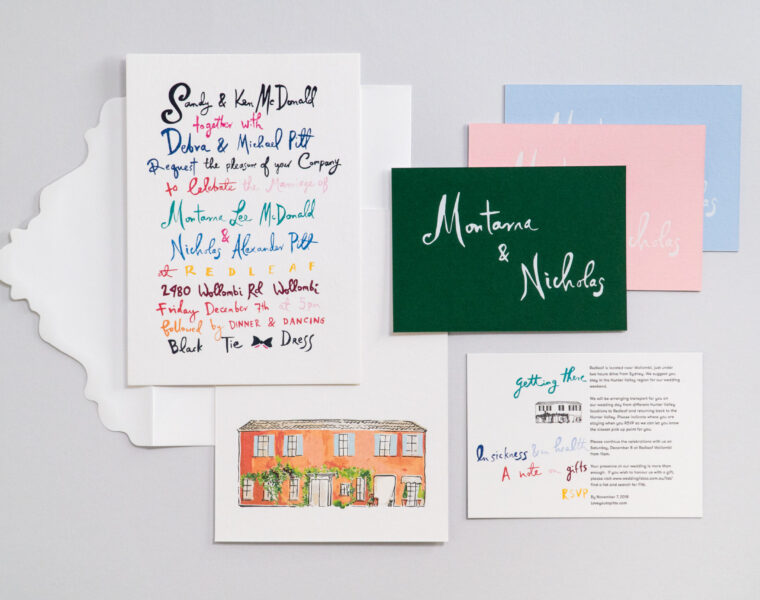 Sandy & Ken McDonald
together with
Debra & Michael Pitt
Request the pleasure of your Company
to Celebrate the Marriage of
Montarna Lee McDonald
&
Nicholas Alexander Pitt
at REDLEAF
2980 Wollombi Rd Wollombi
Friday December 7th at 5pm
followed by DINNER & DANCING
Black Tie Dress
Montarna
&
Nicholas
getting there
Redleaf is located near Wollombi, just under
two hours drive from Sydney. We suggest you
stay in the Hunter Valley region for our wedding
weekend.
We will be arranging transport for you on
our wedding day from different Hunter Valley
locations to Redleaf and returning back to the
Hunter Valley. Please indicate where you are
staying when you RSVP so we can let you know
the closest pick up point for you.
In sickness & in health
Please continue the celebrations with us on
Saturday, December 8 at Redleaf Wollombi
from 11am.
A note on gifts
Your presence at our wedding is more than
enough. If you wish to honour us with a gift,
please visit
find a list and search for
RSVP
By November 7, 2018